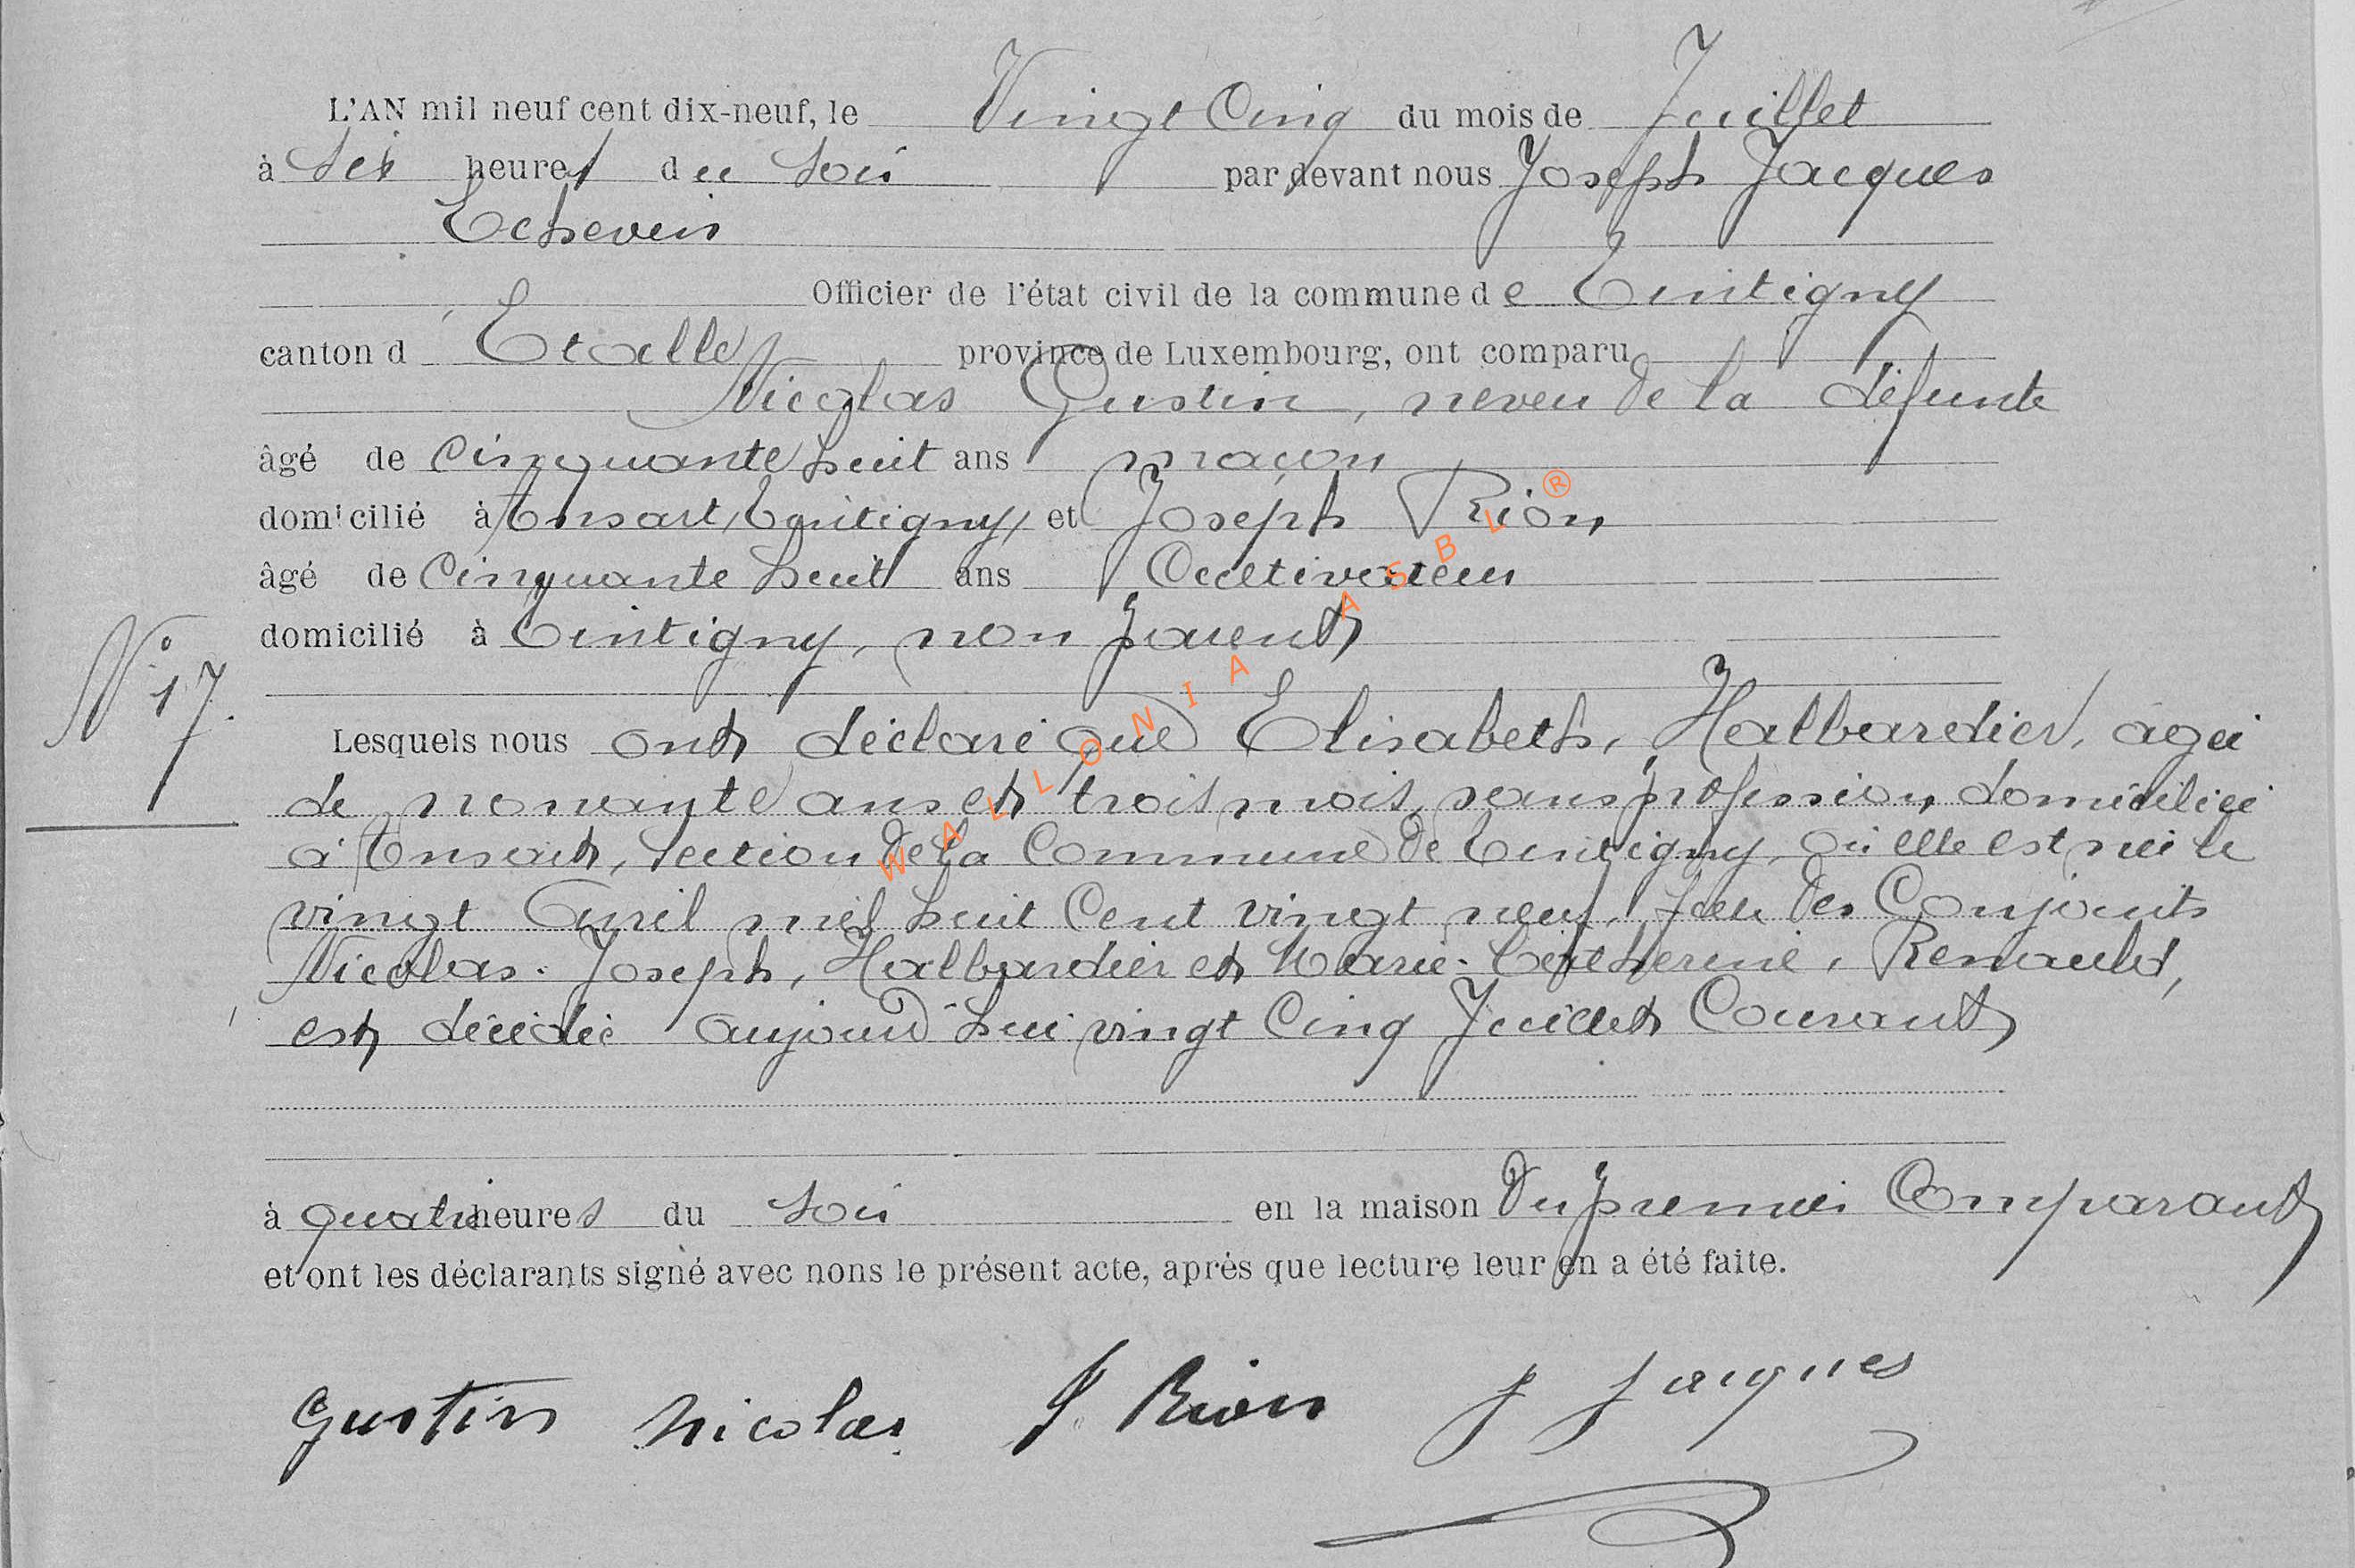 L'AN mil neuf cent dix-neuf, le Vingt Cinq du mois de Juillet
à six heures du Soir par devant nous Joseph Jacques
Echevin
Officier de l'état civil de la commune de Tintigny
canton d Etalle province de Luxembourg, ont comparu
Nicolas Gustin, neveu de la défunte
âgé de Cinquante huit ans maçon
domicilié à Ansart, Tintigny, et Joseph Rion
âgé de Cinquante huit ans Cultivateur
domicilié à Tintigny, non parent
N° 17.
Lesquels nous ont déclaré que Elisabeth, Halbardier, agée
de nonante ans et trois mois, sans profession, domiciliée
à Ansart, Section de la Commune de Tintigny, où elle est née le
vingt Avril mil huit Cent vingt neuf, fille des Conjoints
Nicolas-Joseph, Halbardier et Marie-Catherine, Renauld,
est décédée aujourd'hui vingt Cinq Juillet Courant
à quatre heures du Soir en la maison du premier Comparant
et ont les déclarants signé avec nons le présent acte, après que lecture leur en a été faite.
Gustin Nicolas J. Rion J Jacques
WALLONIA ASBL ®